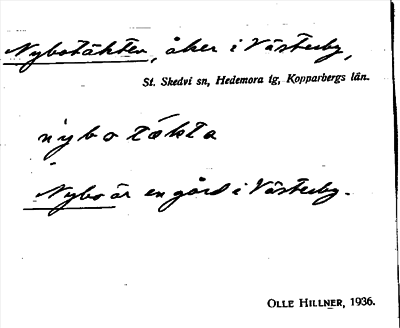 Nybotäkten, åker i Västerby,
St. Skedvi sn, Hedemora tg, Kopparbergs län.
nybotäkta
Nybo är en gård i Västerby.
OLLE HILLNER, 1936.